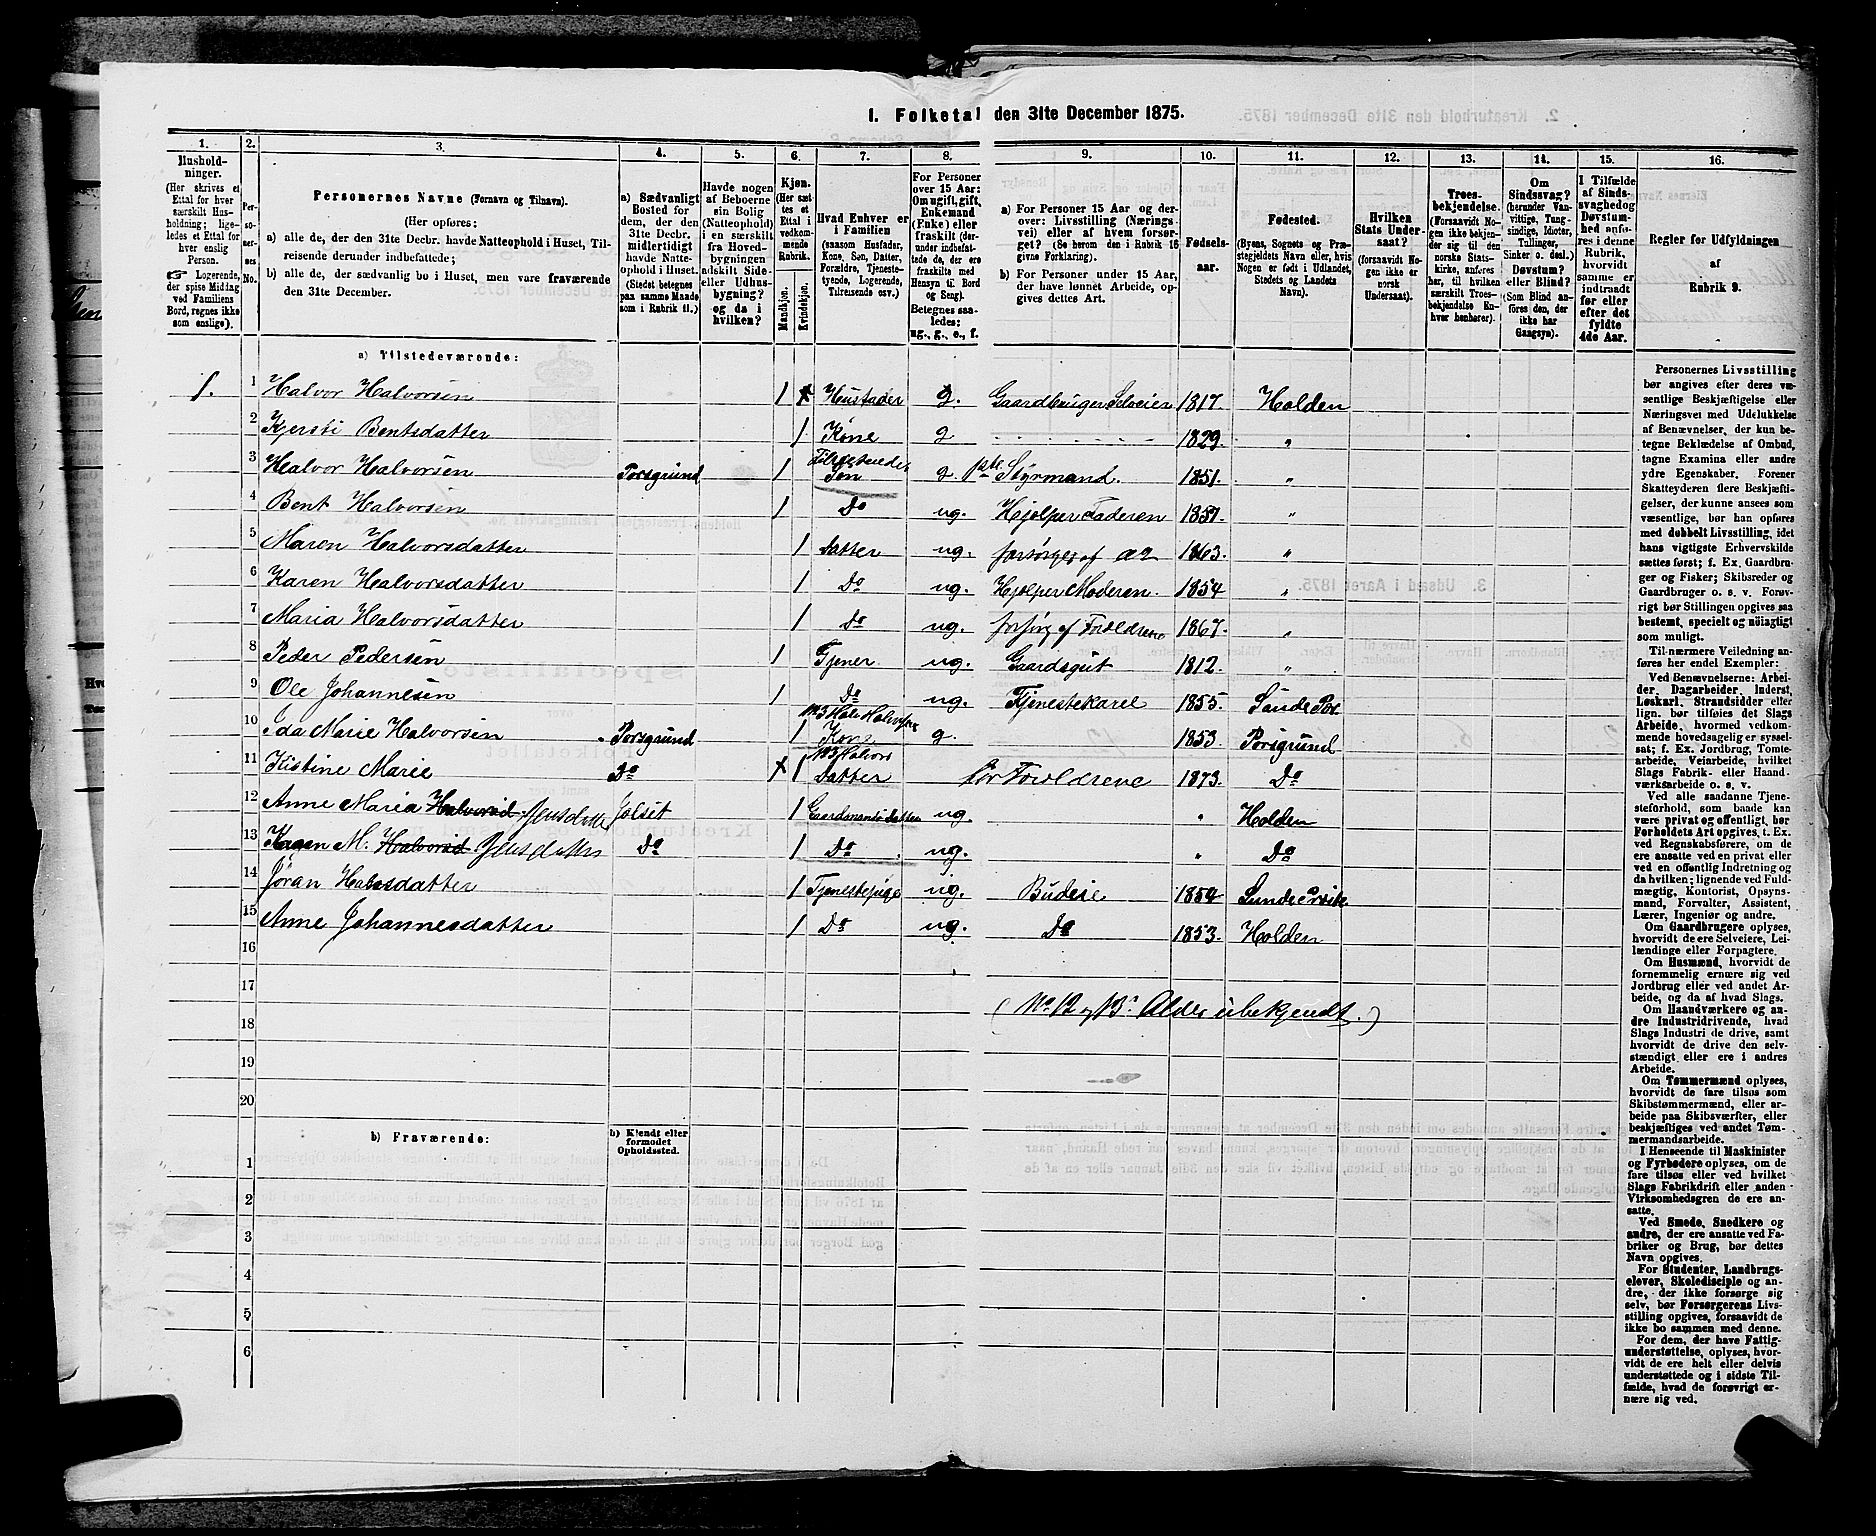 I. Folketal den 31te December 1875.
1. 2. 3. 4. 5. 6. 7. 8. 9. 10. 11. 12. 13. 14. 15. 16.
Hushold-
ninger.
(Her skrives et
Ettal for hver
særskilt Hus-
holdning; lige-
ledes et Ettal for
hver enslig
Person.
☞ Logerende,
der spise Middag
ved Familiens
Bord, regnes ikke
som enslige).
Per-
so-
ner-
nes
No.
Personernes Navne (Fornavn og Tilnavn).
(Her opføres:
a) alle de, der den 31te Decbr. havde Natteophold i Huset, Til-
reisende derunder indbefattede;
b) alle de, der sædvanlig bo i Huset, men vare fraværende
den 31te December.
a) Sædvanligt
Bosted for
dem, der den
31te Decbr.
midlertidigt
havde Natte-
ophold i Huset.
(Stedet betegnes
paa samme Maade
som i Rubrik 11.)
Havde nogen
af Beboerne
sin Bolig
(Natteophold)
i en særskilt
fra Hoved-
bygningen
adskilt Side-
eller Udhus-
bygning?
og da i
hvilken?
Kjøn.
(Her sæt-
tes et
Ettal i
vedkom-
mende
Rubrik.
Mandkjøn.
Kvindekjøn.
Hvad Enhver er
i Familien
(saasom Husfader,
Kone, Søn, Datter,
Forældre, Tjeneste-
tyende, Logerende,
Tilreisende osv.)
For Personer
over 15 Aar:
Om ugift, gift,
Enkemand
(Enke) eller
fraskilt (der-
under indbefat-
tede de, der ere
fraskilte med
Hensyn til Bord
og Seng).
Betegnes saa-
ledes:
ug., g., e., f.
a) For Personer 15 Aar og der-
over: Livsstilling (Nærings-
vei) eller af hvem forsør-
get? (Se herom den i Rubrik 16
givne Forklaring).
b) For Personer under 15 Aar,
der have lønnet Arbeide, op-
gives dettes Art.
Fødsels-
aar.
Fødested.
(Byens, Sognets og Præ-
stegjeldets Navn eller, hvis
Nogen er født i Udlandet,
Stedets og Landets
Navn).
Hvilken
Stats Under-
saat?
(forsaavidt No-
gen ikke er
norsk
Undersaat).
Troes-
bekjendelse.
(Forsaavidt No-
gen ikke bekjen-
der sig til den
norske Stats-
kirke, anføres
her, til hvilken
særskilt Troes-
bekjendelse En-
hver henhører).
Om
Sindssvag?
(herunder Van-
vittige, Tung-
sindige, Idioter,
Tullinger,
Sinker o. desl.)
Døvstum?
eller Blind?
(Som Blind an-
føres den, der
ikke har
Gangsyn).
I Tilfælde
af Sinds-
svaghed og
Døvstum-
hed anfø-
res i denne
Rubrik,
hvorvidt
samme er
indtraadt
før eller
efter det
fyldte
4de Aar.
Regler for Udfyldningen
af
Rubrik 9.
a) Tilstedeværende:
1. 1 Halvor Halvorsen 1 Husfader g. Gaardbruger Selveier 1817 Holden
2 Kjersti Bentsdatter 1 Kone g 1829. "
3 Halvor Halvorsen Porsgrund 1 Tilreisende Søn g. Styrmand. 1851. "
4 Bent Halvorsen 1 Do ug. Hjælper Faderen 1857. "
5 Maren Halvorsdatter 1 Datter ug. forsørges af do 1863. "
6 Karen Halvorsdatter 1 Do ug. Hjelper Moderen. 1854 "
7 Maria Halvorsdatter 1 Do ug. forsørg af Foreldrene 1867. "
8 Peder Pedersen 1 Tjener ug. Gaardsgut 1812. "
9 Ole Johannesen 1 Do ug. Tjenestekarel 1855. Sunde
10 Ida Marie Halvorsen Porsgrund 1 No 3 Halv Halvorsens Kone g. 1853. Porsgrund
11 Kistine Marie Do 1 No 3 Halvors Datter for Foreldrene 1873. Do
12 Anne Maria Halvorsd. Jensdatter 1 Gaardmandsdatter ug. " Holden
13 Karen M. Halvorsd Jensdatter Do 1 Do ug. " Do
14 Jøran Halvsdatter 1 Tjenestepige ug. Budeie 1854
15 Anne Johannesdatter 1 Do ug. Do 1853. Holden
16
17
(No 12 og 13. Alder ubekjendt.)
18
19
20
b) Fraværende:
b) Kjendt eller
formodet
Opholdssted.
1
2
3
4
5
6
Personernes Livsstilling
bør angives efter deres væ-
sentlige Beskjæftigelse eller
Næringsvei med Udelukkelse
af Benævnelser, der kun be-
tegne Beklædelse af Ombud,
tagne Examina eller andre
ydre Egenskaber. Forener
Skatteyderen flere Beskjæfti-
gelser, der kunne ansees som
væsentlige, bør han opføres
med dobbelt Livsstilling, idet
hans vigtigste Erhvervskilde
sættes først; f. Ex. Gaardbru-
ger og Fisker; Skibsreder og
Gaardbruger o. s. v. Forøv-
rigt bør Stillingen opgives saa
bestemt, specielt og nöiagtigt
som muligt.
Til nærmere Veiledning an-
føres her endel Exempler:
Ved Benævnelserne: Arbei-
der, Dagarbeider, Inderst,
Løskarl, Strandsidder eller
lign. bør tilføies det Slags
Arbeide, hvormed vedkom-
mende hovedsagelig er syssel-
sat; f. Ex. Jordbrug, Tomte-
arbeide, Veiarbeide, hvilket
Slags Fabrik- eller Haand-
værksarbeide o. s. v.
Ved alle saadanne Tjene-
steforhold, som baade kan
være privat og offentligt, bør
Forholdets Art opgives, t. Ex.
ved Regnskabsførere, om de
ere ansatte ved en privat eller
ved en offentlig Indretning og
da hvilken; lignende ved Fuld-
mægtig, Kontorist, Opsyns-
mand, Forvalter, Assistent,
Lærer, Ingeniør og andre.
Om Gaardbrugere oplyses,
hvorvidt de ere Selveiere, Lei-
lændinge eller Forpagtere.
Om Husmænd, hvorvidt de
fornemmelig ernære sig ved
Jordbrug eller ved andet Ar-
beide, og da af hvad Slags.
Om Haandværkere og an-
dre Industridrivende, hvad
Slags Industri de drive, samt
hvorvidt de drive den selv-
stændigt eller ere i andres
Arbeide.
Om Tømmermænd oplyses,
hvorvidt de fare tilsøs som
Skibstømmermænd, eller ar-
beide paa Skibsværfter, eller
beskjæftiges ved andet Tøm-
mermandsarbeide.
I Henseende til Maskinister
og Fyrbødere oplyses, om de
fare tilsøs eller ved hvilket
Slags Fabrikdrift eller anden
Virksomhedsgren de ere an-
satte.
Ved Smede, Snedkere og
andre, der ere ansatte ved Fa-
briker og Brug, bør dettes
Navn opgives.
For Studenter, Landbrugs-
elever, Skoledisciple og an-
dre, der ikke forsørge sig
selv, bør Forsørgerens Livs-
stilling opgives, forsaavidt de
ikke bo sammen med denne.
For dem, der have Fattig-
understøttelse, oplyses, hvor-
vidt de ere helt eller delvis
understøttede og i sidste Til-
fælde, hvad de forøvrigt er-
nære sig ved.